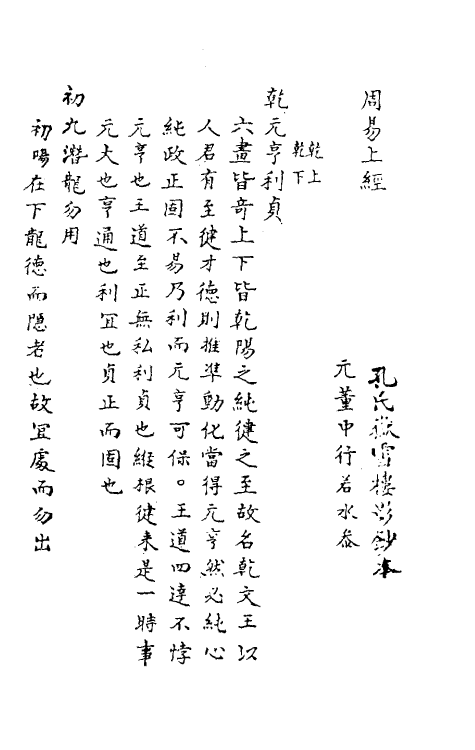 周易上經
孔氏嶽雪樓影鈔本
元董中行若水叅
乾上
乾下
乾元亨利貞
六畫皆奇上下皆乾陽之純健之至故名乾文王以
人君有至健才德則推準動化當得元亨然必純心
純政正固不易乃利而元亨可保。王道四達不悖
元亨也王道至正無私利貞也縱根健来是一時事
元大也亨通也利冝也貞正而固也
初九潛龍勿用
初陽在下龍德而隱者也故冝處而勿出